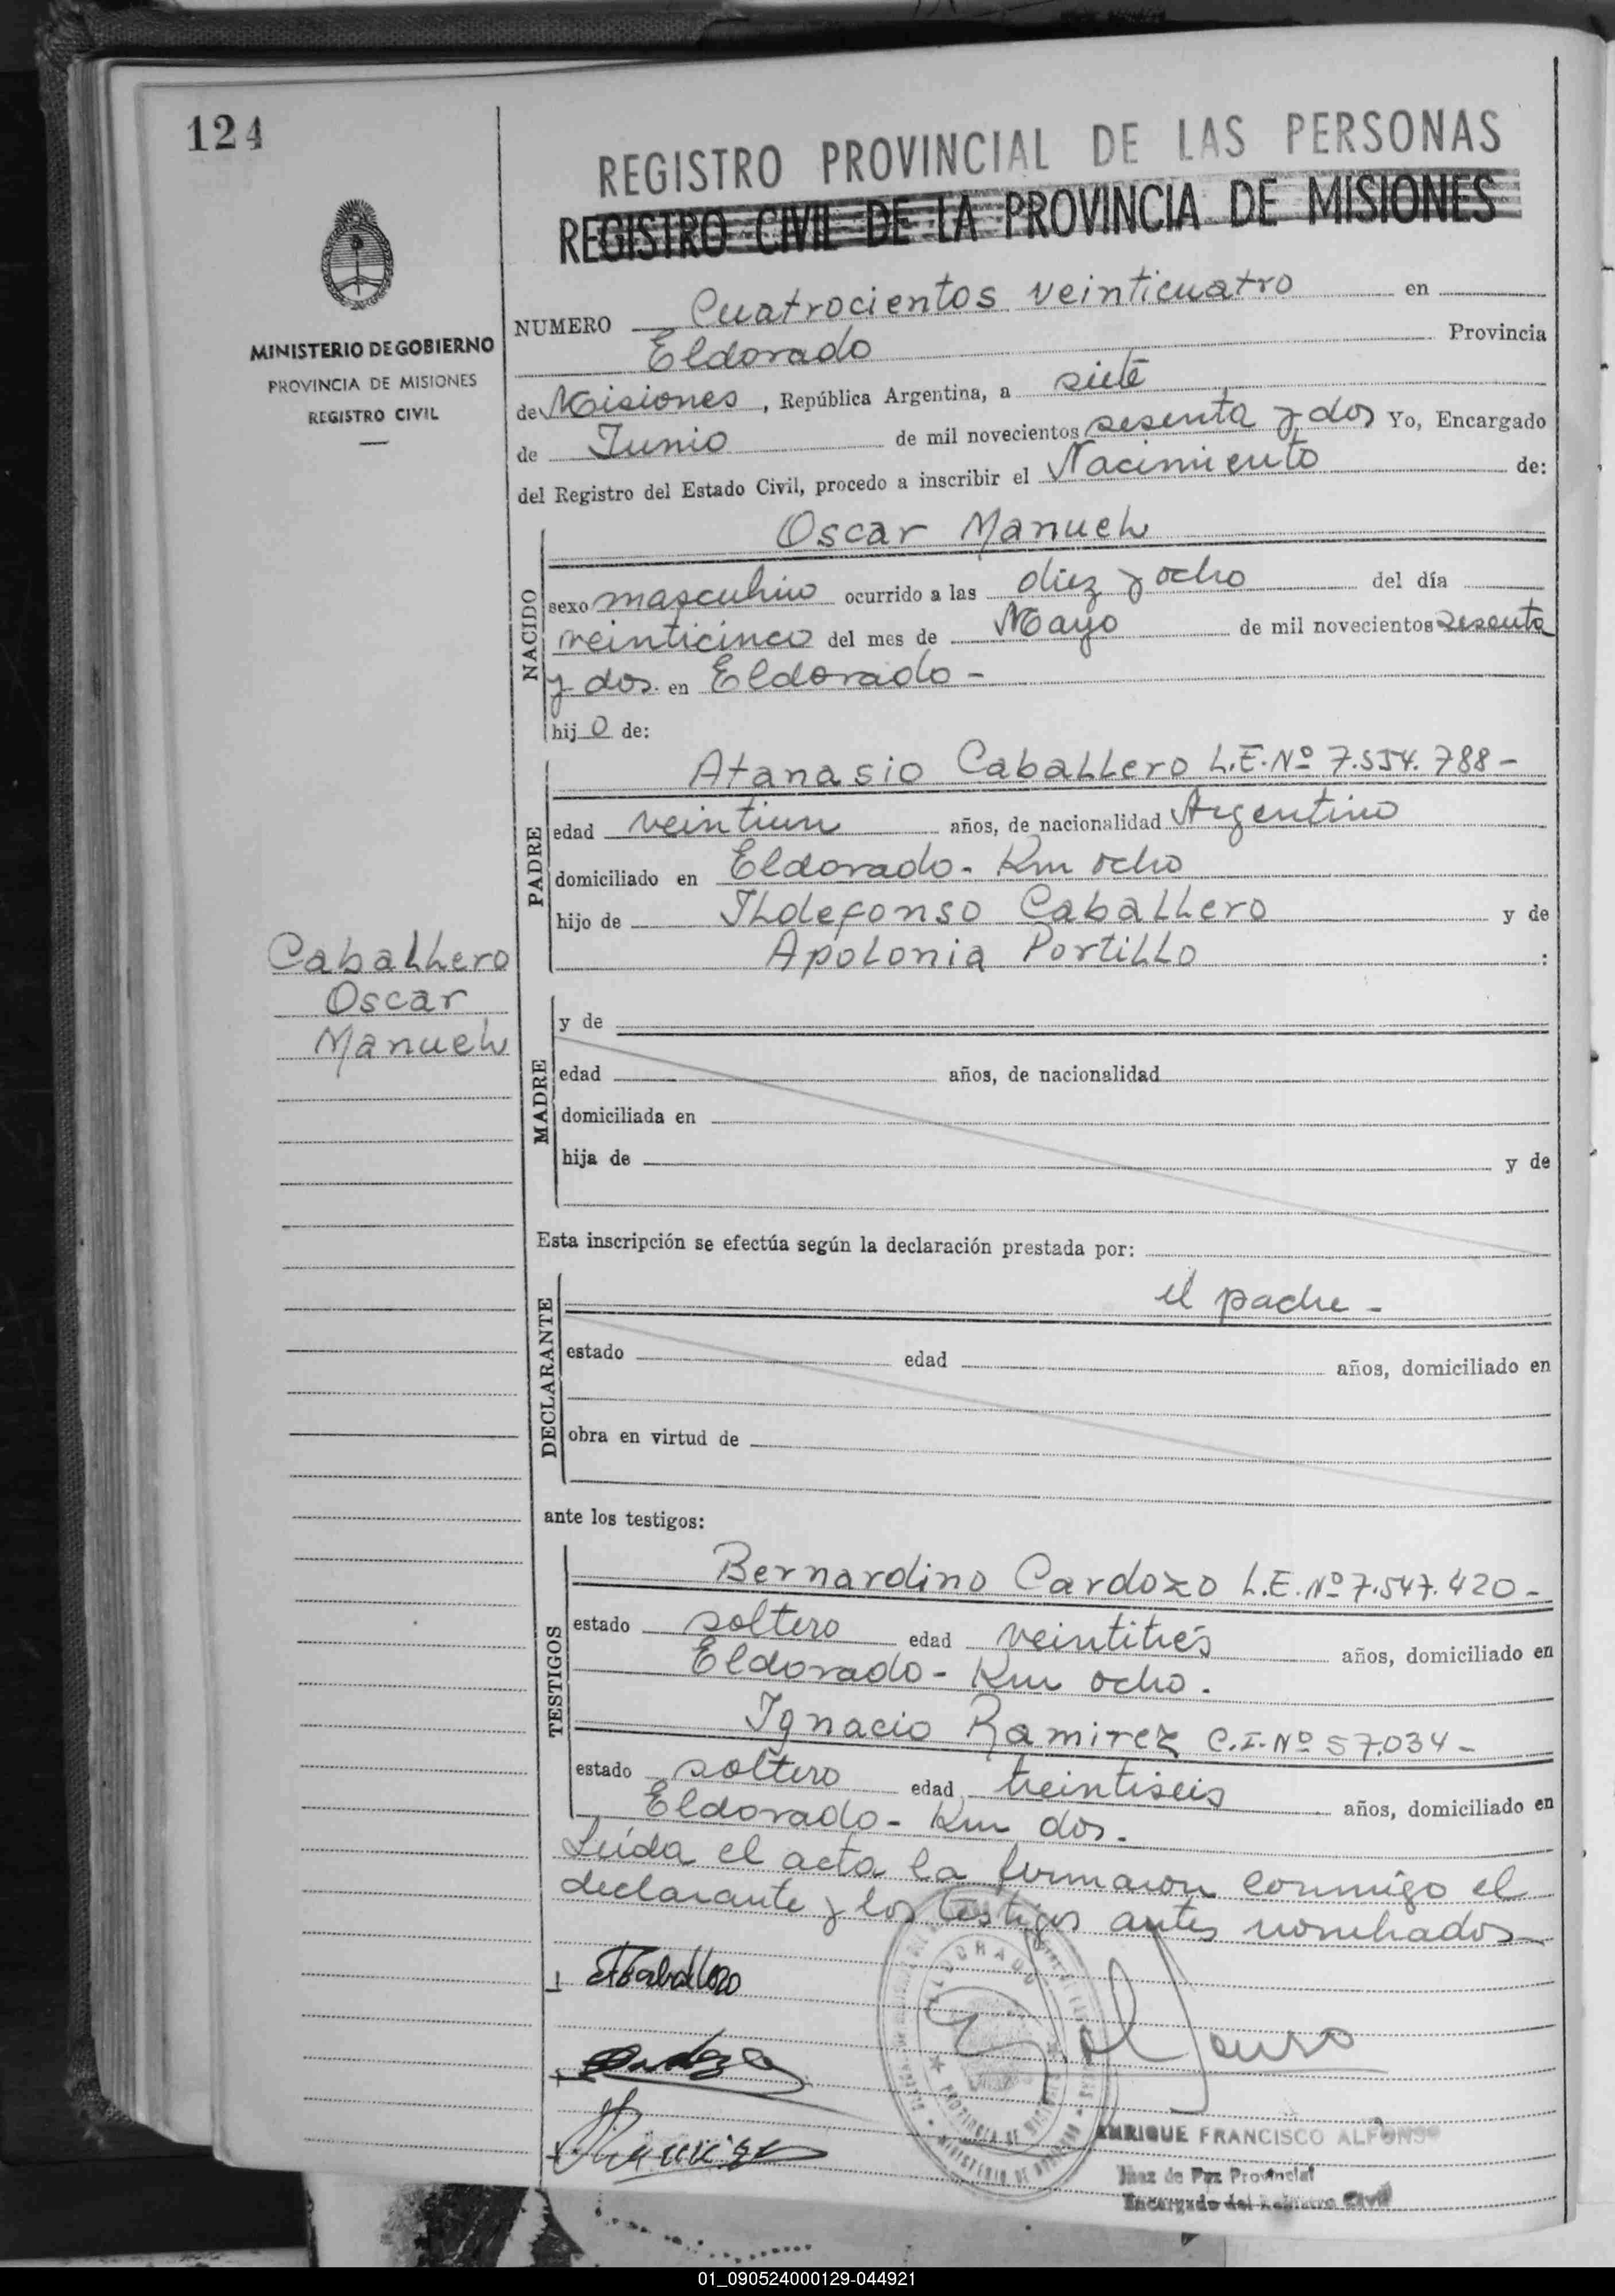 124
REGISTRO PROVINCIAL DE LAS PERSONAS
REGISTRO CIVIL DE LA PROVINCIA DE MISIONES
MINISTERIO DE GOBIERNO
PROVINCIA DE MISIONES
REGISTRO CIVIL
NUMERO Cuatrocientos veinticuatro en
Eldorado Provincia
de Misiones, República Argentina, a siete
de Junio de mil novecientos sesenta y dos Yo, Encargado
del Registro del Estado Civil, procedo a inscribir el Nacimiento de:
NACIDO
Oscar Manuel
sexo masculino ocurrido a las diez y ocho del día
veinticinco del mes de Mayo de mil novecientos sesenta
y dos. en Eldorado -
hij o de:
PADRE
Atanasio Caballero L.E. Nº 7.554.788 -
edad veintiun años, de nacionalidad Argentino
domiciliado en Eldorado - Km ocho
hijo de Ildefonso Caballero y de
Apolonia Portillo :
Caballero
Oscar
Manuel
MADRE
y de
edad años, de nacionalidad
domiciliada en
hija de y de
Esta inscripción se efectúa según la declaración prestada por:
DECLARANTE
el padre -
estado edad años, domiciliado en
obra en virtud de
ante los testigos:
TESTIGOS
Bernardino Cardozo L.E. Nº 7.547.420 -
estado soltero edad veintitrés años, domiciliado en
Eldorado - Km ocho.
Ignacio Ramirez C.I. Nº 57.034 -
estado soltero edad treintiseis años, domiciliado en
Eldorado - Km dos.
Leída el acta la firmaron conmigo el
declarante y los testigos antes nombrados
ELDORADO
PROVINCIA DE MISIONES
MINISTERIO DE GOBIERNO
ENRIQUE FRANCISCO ALFONSO
Juez de Paz Provincial
Encargado del Registro Civil
01_090524000129-044921